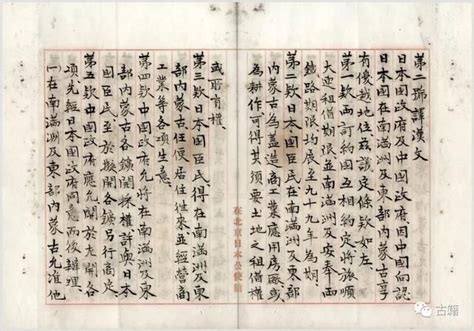 第二號譯漢文
日本國政府及中國政府因中國向認
日本國在南滿洲及東部內蒙古享
有優越地位茲議定條欵如左
第一欵兩訂約國互相約定將旅順
大連租借期限並南滿洲及安奉兩
鐵路期限均展至九十九年為期
第二欵日本國臣民在南滿洲及東部
內蒙古為蓋造商工業應用房廠或
為耕作可得其須要土地之租借權
在北京日本公使館
或所有權
第三欵日本國臣民得在南滿洲及東
部內蒙古任便居住往來並經營商
工業等各項生意
第四欵中國政府允將在南滿洲及東
部內蒙古各鑛開採權許與日本
國臣民至於擬開各鑛另行商定
第五欵中國政府應允關於左開各
項先經日本國政府同意而後辦理
(一)在南滿洲及東部內蒙古允准他
古籍